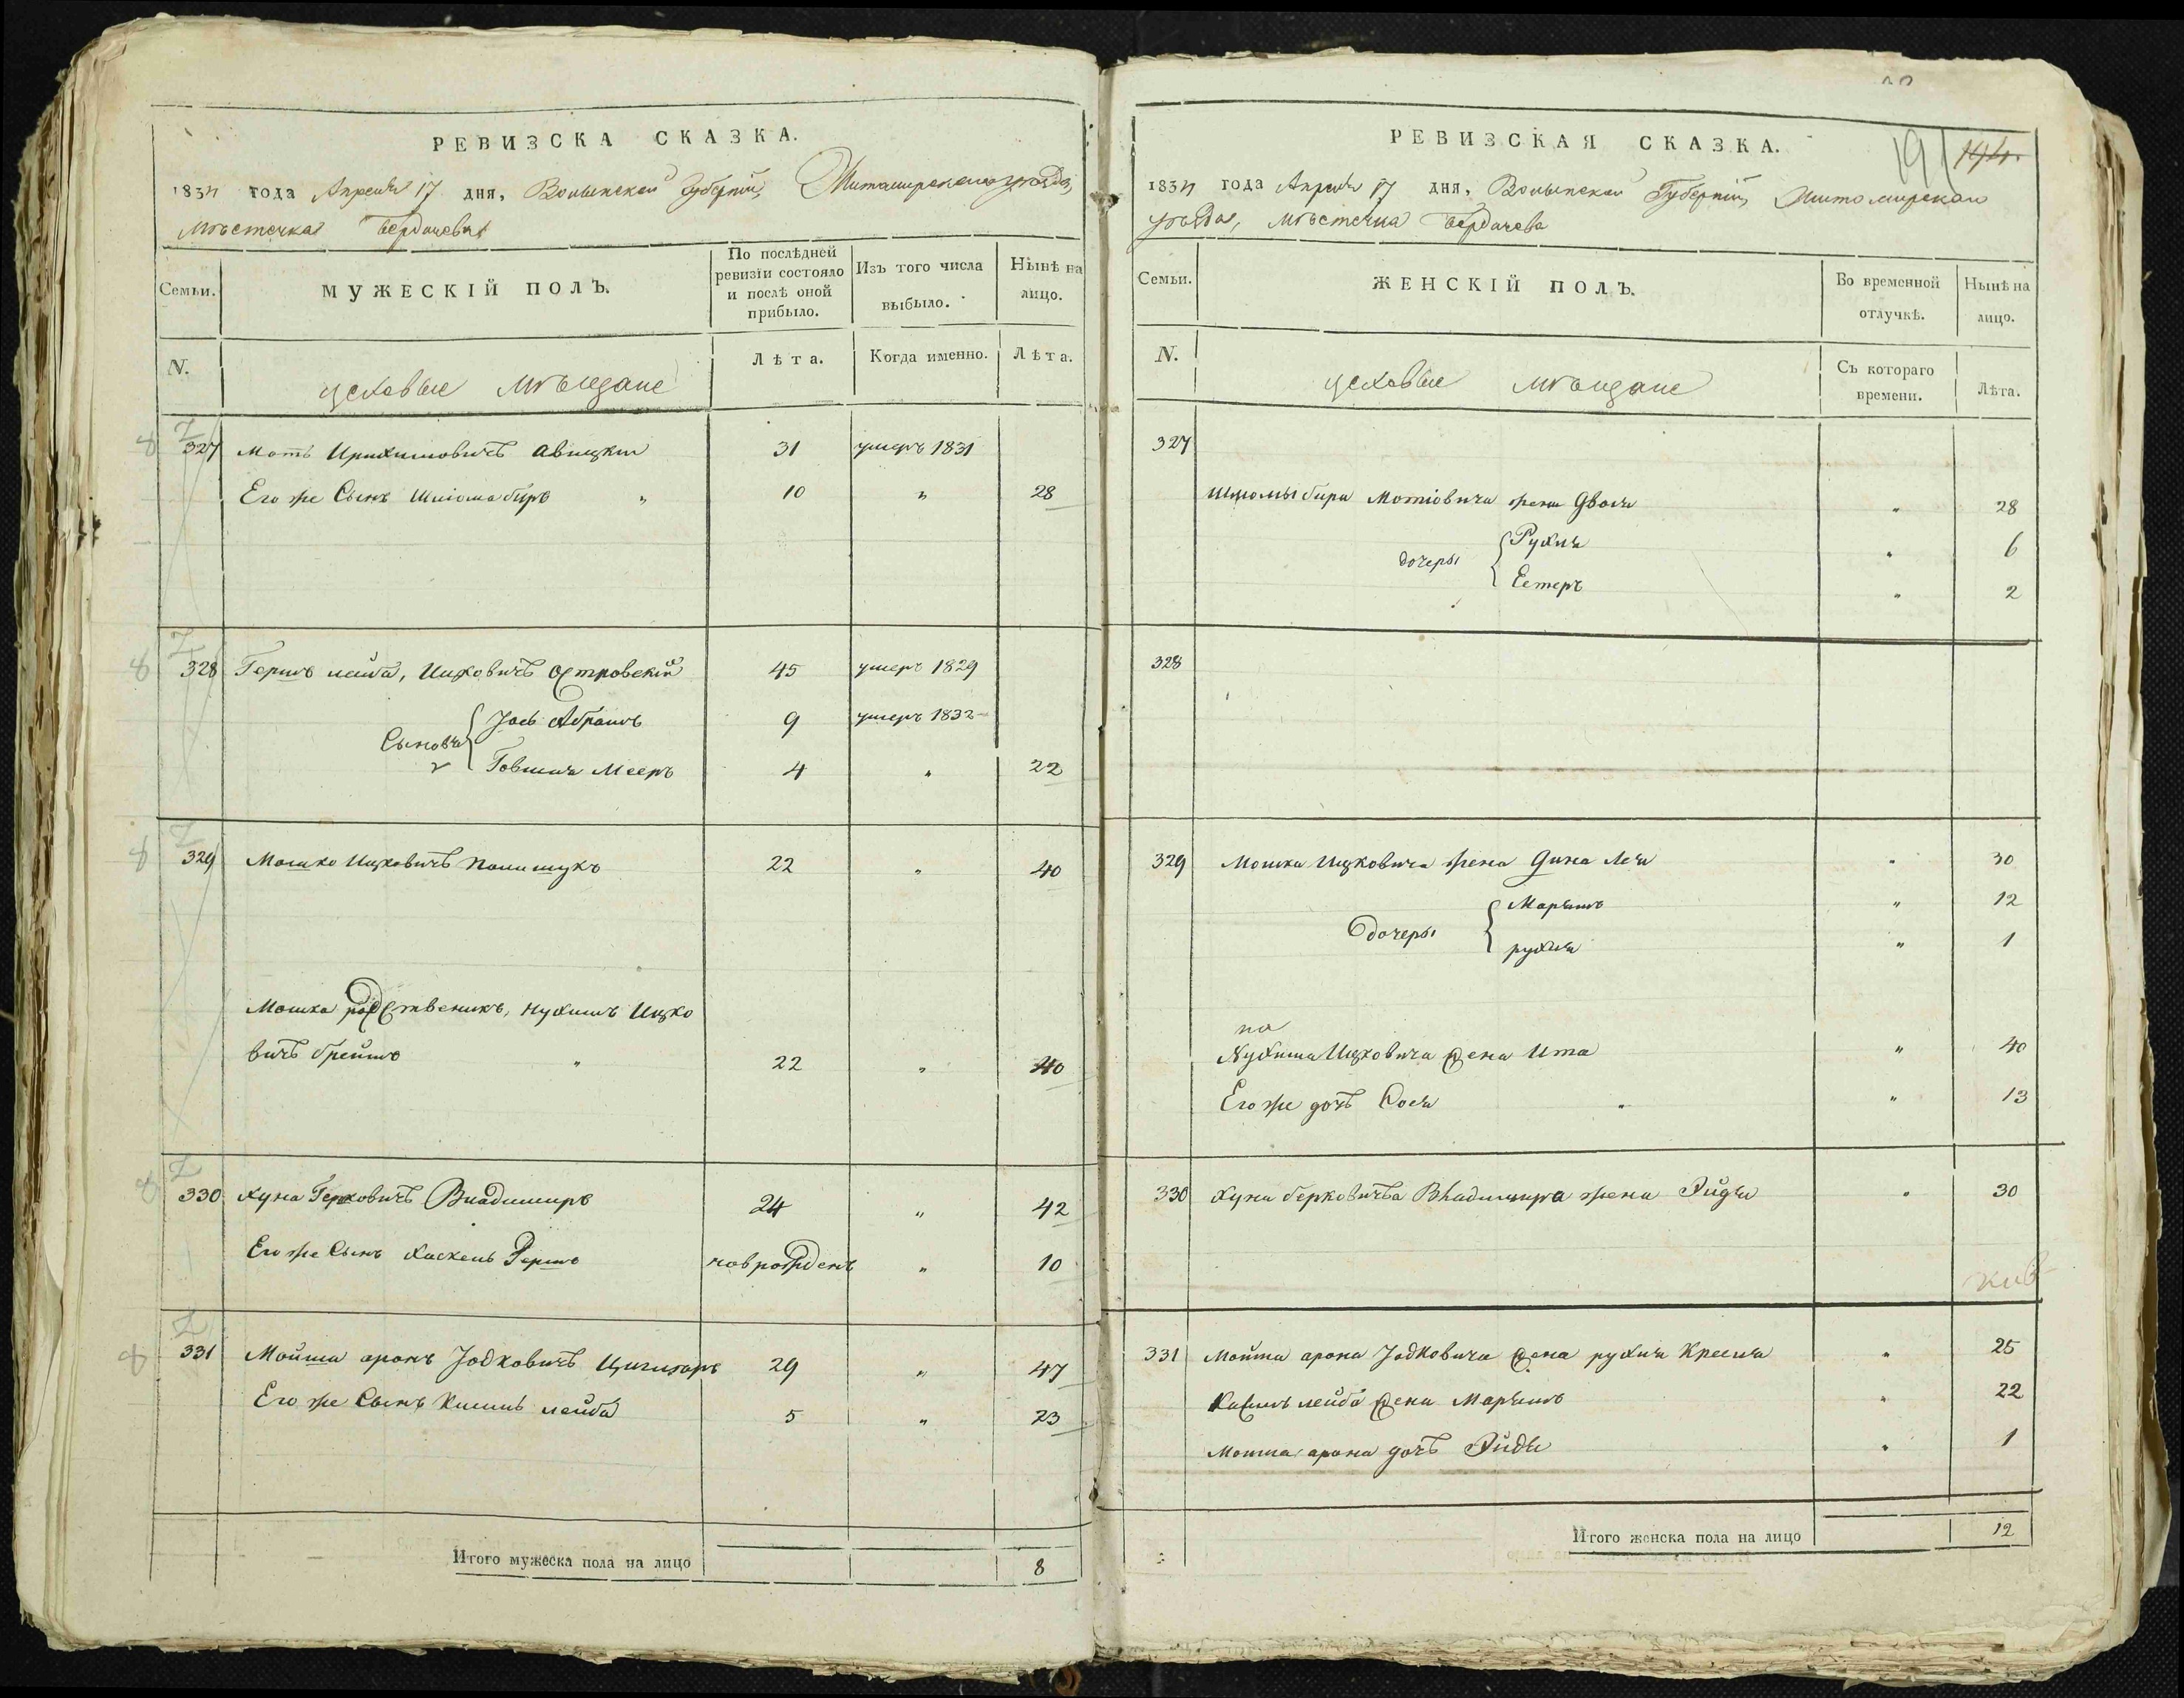 РЕВИЗСКА СКАЗКА.
1834 года Апреля 17 дня, Волынской Губерніи, Житомирскаго уѣзда,
Мѣстечка Бердичева
Семьи.
МУЖЕСКІЙ ПОЛЪ.
По послѣдней ревизіи состояло и послѣ оной прибыло.
Изъ того числа выбыло.
Нынѣ на лицо.
N.
цеховые мѣщане
Лѣта.
Когда именно.
Лѣта.
327 Моть авицкій 31 умеръ 1831
Его же Сынъ Шліома биръ " 10 " 28
328 Гершъ лейба, Ицковичъ Островскій 45 умеръ 1829
Сыновья
Іось Абрамъ 9 умеръ 1832
2 Говшия Мееръ 4 " 22
329 Мошко Ицковичъ Полищукъ 22 " 40
Мошка родственикъ, Нухимъ Ицко
вичъ " 22 " 40
330 Хуна Берковичъ Владимиръ 24 " 42
Его же Сынъ Хаскель Гершъ новрожденъ " 10
331 Мойша аронъ Іодковичъ 29 " 47
Его же Сынъ лейба 5 " 23
Итого мужеска пола на лицо 8
РЕВИЗСКАЯ СКАЗКА.
191 194.
1834 года Апреля 17 дня, Волынской Губерніи, Житомирскаго
уѣзда, Мѣстечка Бердичева
Семьи.
ЖЕНСКІЙ ПОЛЪ.
Во временной отлучкѣ.
Нынѣ на лицо.
N.
цеховые мѣщане
Съ котораго времени.
Лѣта.
327
Шліомы бира Мотіовича жена Двося " 28
дочеры
Рухля " 6
Естеръ " 2
328
329 Мошка Ицковича жена Дина Лея " 30
дочеры
Марьямъ " 12
рухля " 1
на
Нухима Ицковича жена Ита " 40
Его же дочь Сося " " 13
330 Хуна берковичъа Владимира жена Эйдля " 30
331 Мойша арона Іодковича жена рухля Крееля " 25
лейба жена Марьямъ " 22
Мошка арона дочь Эйдля " 1
Итого женска пола на лицо 12